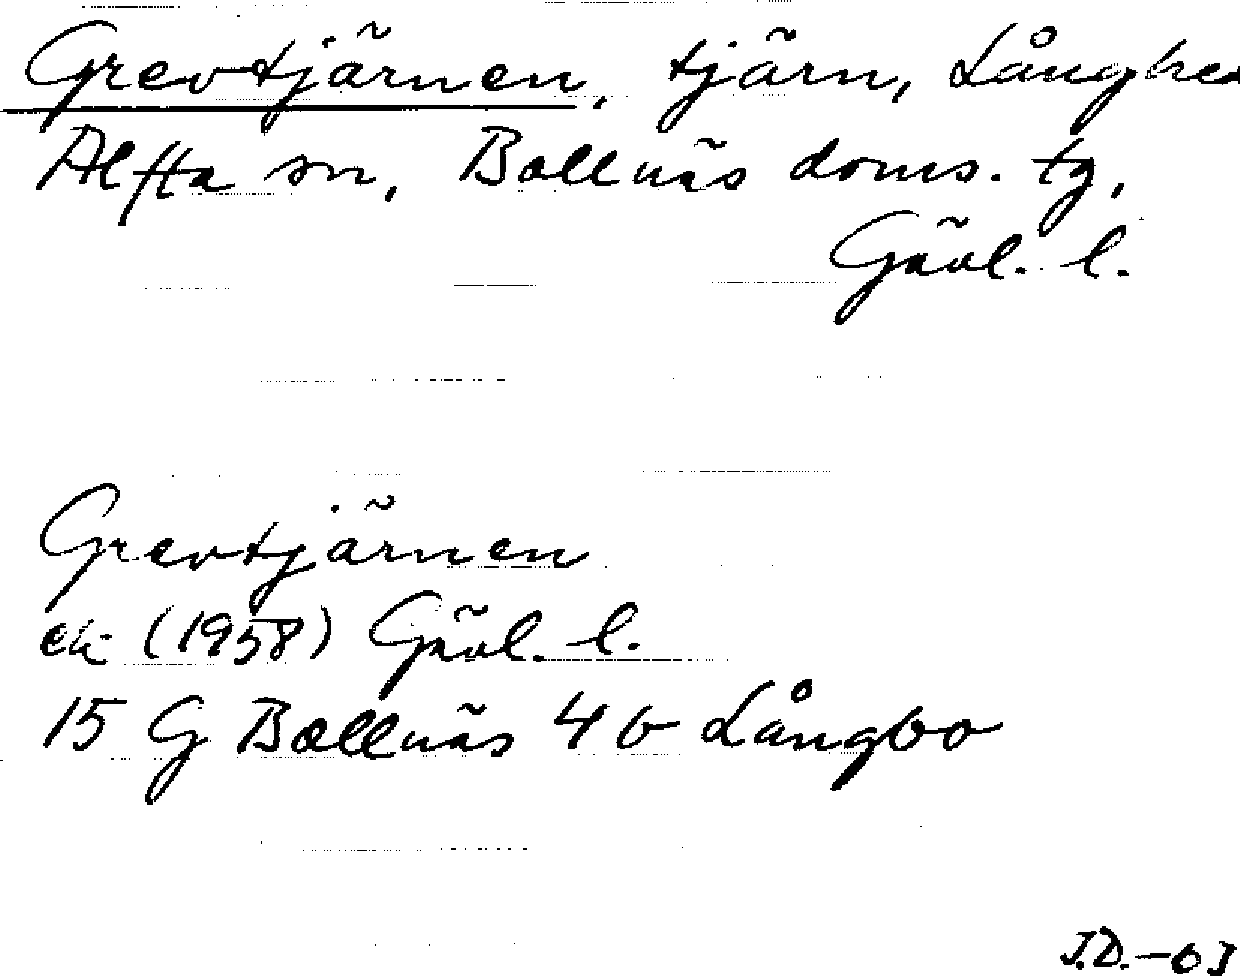 Grevtjärnen, tjärn, Långhed
Alfta sn, Bollnäs doms. tg,
Gävl. l.
Grevtjärnen
ek (1958) Gävl. l.
15 G Bollnäs 4 b Långbo
J.D.-63